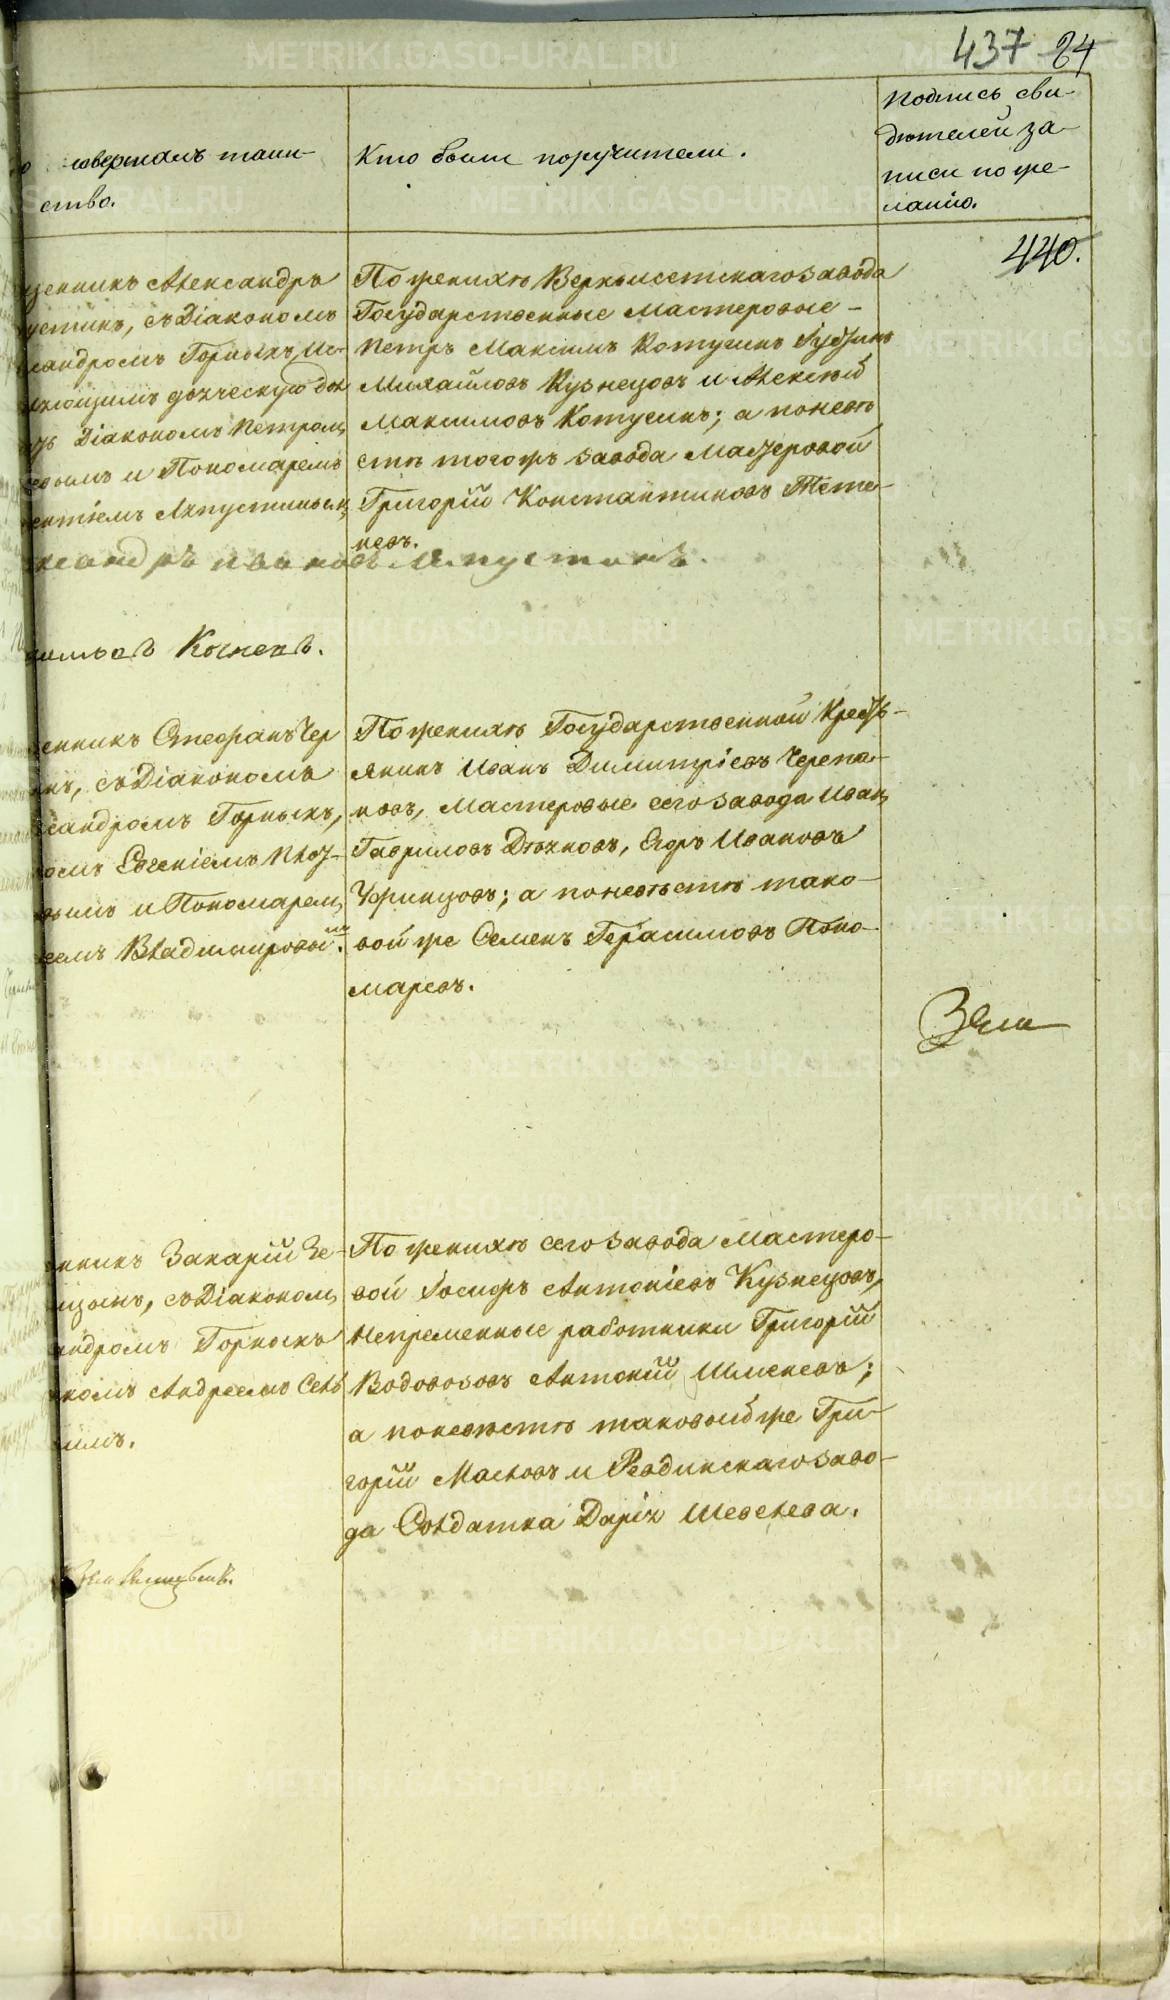 437 84
совершалъ таин-
ство.
Кто были поручители.
Подпись сви-
дѣтелей за-
писи по же-
ланію.
440.
щенникъ Александръ
устинъ, съ Діакономъ
сандромъ Горныхъ, Ис-
діакономъ Петромъ
и Пономаремъ
Ляпустинымъ
Иванов Ляпустинъ.
По женихѣ Верхъисетскаго завода
Государственные мастеровые –
Петръ Максимъ Котугинъ
Михайловъ Кузнецовъ и Алексѣй
Максимовъ Котугинъ; а по невѣ
стѣ тогожъ завода мастеровой
Григорій Константиновъ Тете-
невъ.
енникъ Стефанъ Чер
нъ, съ Діакономъ
сандромъ Горныхъ,
комъ Евгеніемъ
вымъ и Пономаремъ
Владимировымъ.
По женихѣ Государственной Кресть-
янинъ Иванъ Димитріевъ Черепа-
новъ, мастеровые сего завода Иванъ
Гавриловъ Дьячковъ, Егоръ Ивановъ
Уфинцовъ; а по невѣстѣ тако-
вой же Семенъ Герасимовъ Поно-
маревъ.
нникъ Захарій Зе-
съ Діакономъ
андромъ Горныхъ
комъ Андреемъ Сель
имъ.
По женихѣ сего завода мастеро-
вой Іосифъ Антоніевъ Кузнецовъ,
непременные работники Григорій
Водовозовъ Антоній Шмелевъ;
а по невѣстѣ таковый же Гри-
горій Масловъ и Ревдинскаго заво-
да Солдатка Дарія Шевелева.
METRIKI.GASO-URAL.RU